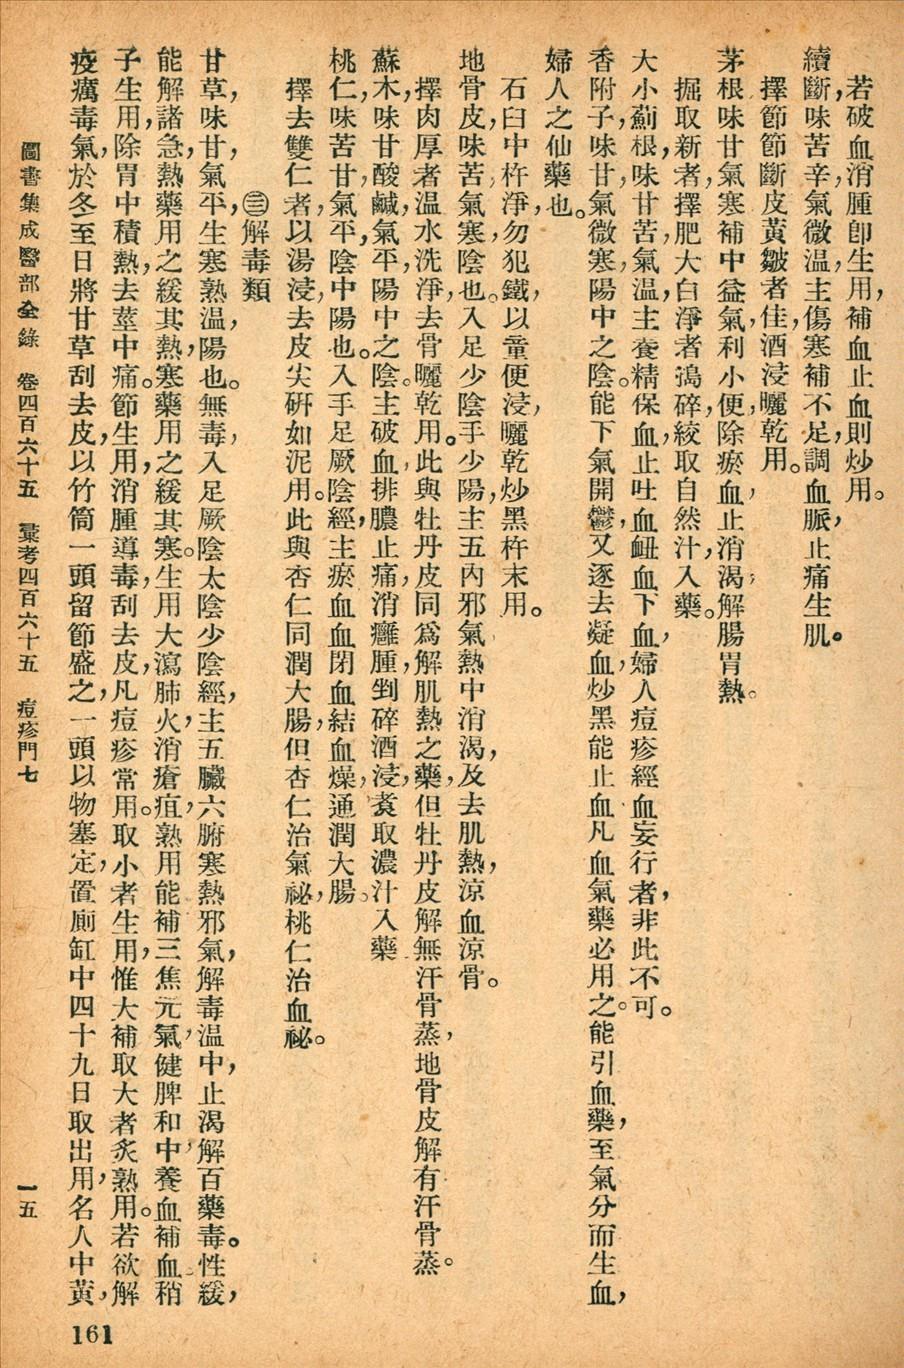 若破血消腫卽生用，補血止血則炒用。
續斷，味苦辛，氣微溫，主傷寒補不足，調血脈，止痛生肌。
擇節節斷皮黃皺者佳，酒浸曬乾用。
茅根味甘氣寒補中益氣，利小便，除瘀血，止消渴，解腸胃熱。
掘取新者，擇肥大白淨者搗碎，絞取自然汁，入藥。
大小薊根，味甘苦，氣溫，主養精保血，止吐血衄血下血，婦人痘疹經血妄行者，非此不可。
香附子，味甘，氣微寒，陽中之陰。能下氣開鬱，又逐去凝血，炒黑能止血，凡血氣藥必用之。能引血藥，至氣分而生血，
婦人之仙藥也。
石臼中杵淨，勿犯鐵，以童便浸，曬乾炒黑杵末用。
地骨皮，味苦，氣寒，陰也。入足少陰手少陽，主五內邪氣熱中消渴，及去肌熱，涼血涼骨。
擇肉厚者，溫水洗淨，去骨曬乾用。此與牡丹皮同爲解肌熱之藥，但牡丹皮解無汗骨蒸，地骨皮解有汗骨蒸。
蘇木，味甘酸鹹，氣平，陽中之陰。主破血，排膿止痛，消癰腫，剉碎酒浸，煑取濃汁入藥
桃仁，味苦甘，氣平，陰中陽也。入手足厥陰經，主瘀血血閉血結血燥，通潤大腸。
擇去雙仁者，以湯浸，去皮尖研如泥用。此與杏仁同潤大腸，但杏仁治氣祕，桃仁治血祕。
㊂解毒類
甘草，味甘，氣平，生寒熟溫，陽也。無毒，入足厥陰太陰少陰經，主五臟六腑寒熱邪氣，解毒溫中，止渴解百藥毒。性緩，
能解諸急，熱藥用之緩其熱，寒藥用之緩其寒。生用大瀉肺火，消瘡疽，熟用能補三焦元氣，健脾和中，養血補血，稍
子生用，除胃中積熱，去莖中痛。節生用，消腫導毒，刮去皮，凡痘疹常用。取小者生用，惟大補取大者炙熟用。若欲解
疫癘毒氣，於冬至日將甘草刮去皮，以竹筒一頭留節盛之，一頭以物塞定，置廁缸中四十九日取出用，名人中黃，
圖書集成醫部全錄　卷四百六十五　彙考四百六十五　痘疹門七　一五
161